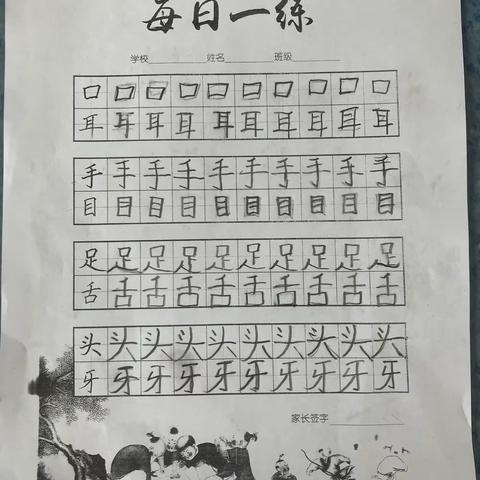 每日一练
学校 姓名 班级
口 口 口 口 口 口 口 口 口 口
耳 耳 耳 耳 耳 耳 耳 耳 耳 耳
手 手 手 手 手 手 手 手 手 手
目 目 目 目 目 目 目 目 目 目
足 足 足 足 足 足 足 足 足 足
舌 舌 舌 舌 舌 舌 舌 舌 舌 舌
头 头 头 头 头 头 头 头 头 头
牙 牙 牙 牙 牙 牙 牙 牙 牙 牙
家长签字